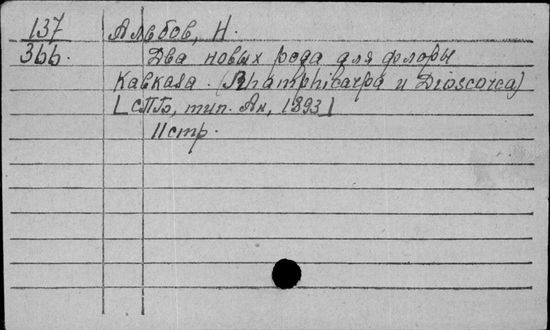 137 Альбов, Н.
366. Два новых рода для флоры
Кавказа. (Rhamphicarpa и Dioscorea)
[СПБ, тип. Ак, 1893]
11 стр.